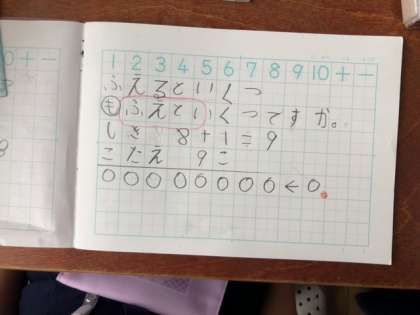 1 2 3 4 5 6 7 8 9 10 + −
ふえるといくつ
もふえていくつですか。
しき 8+1=9
こたえ 9こ
○○○○○○○○←○